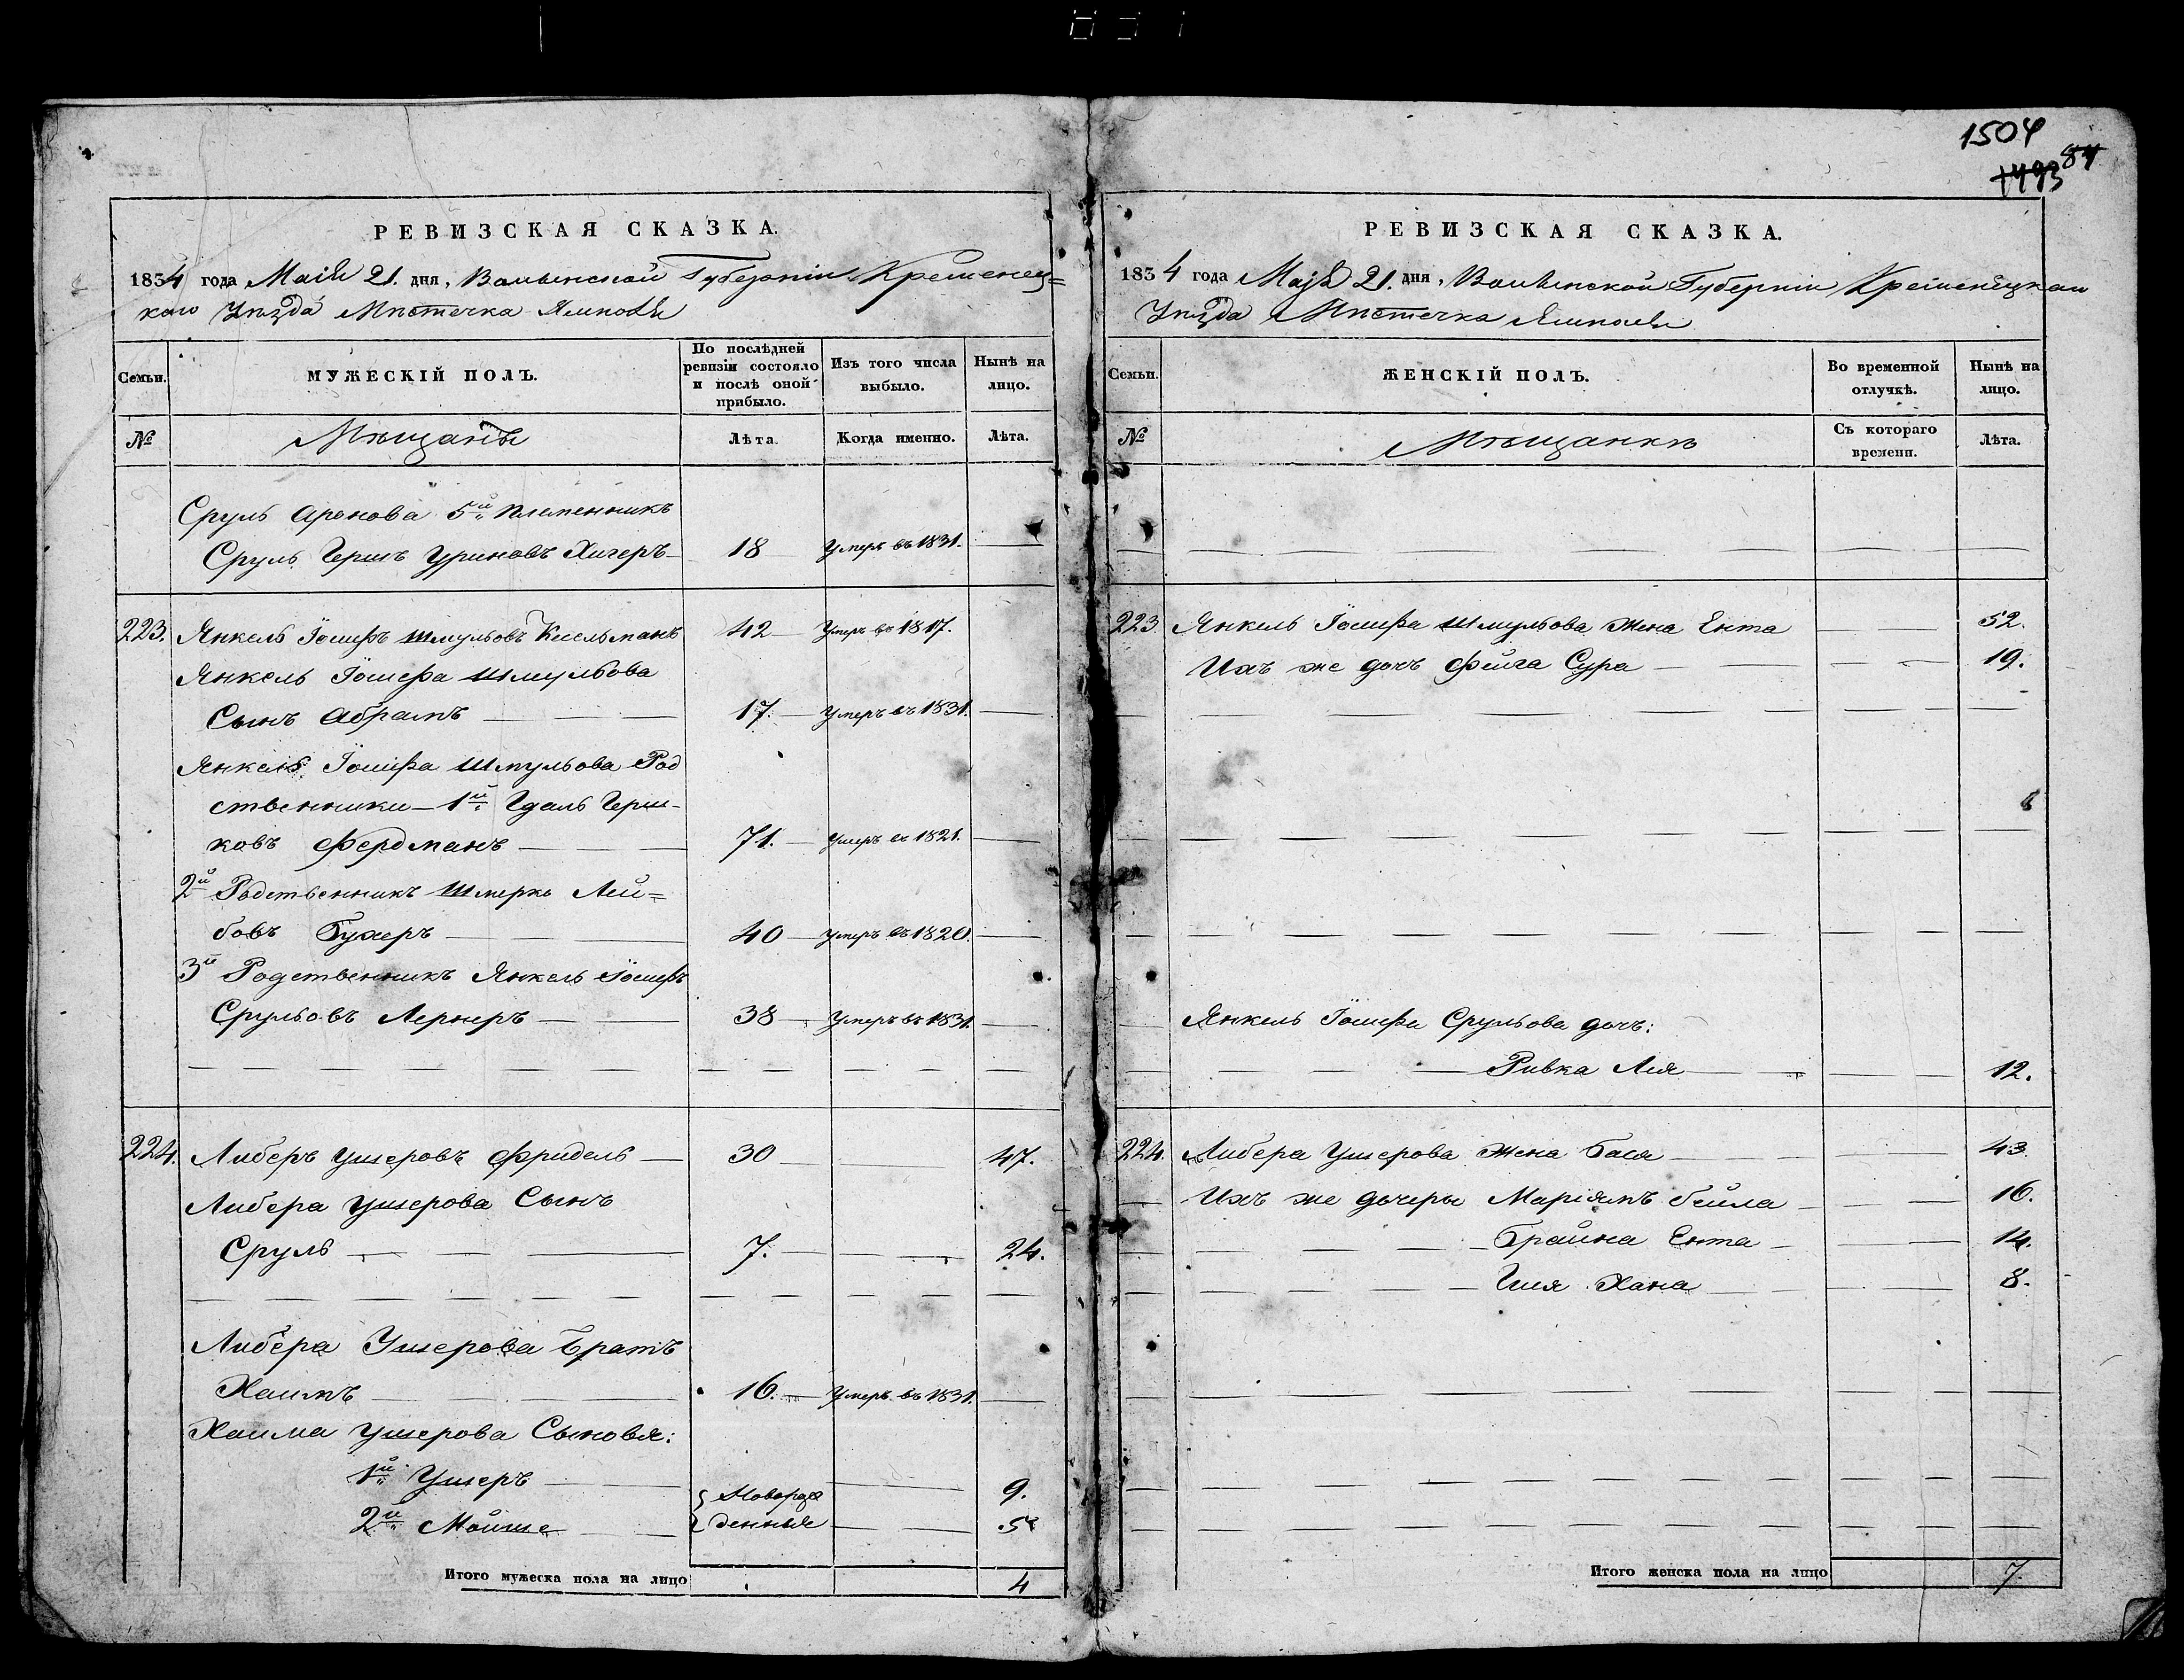 1504
1493 84
РЕВИЗСКАЯ СКАЗКА.
1834 года Маія 21. дня, Волынской Губерніи Кременец=
каго Уѣзда Мѣстечка Ямполя
Семьи.
МУЖЕСКІЙ ПОЛЪ.
По послѣдней ревизіи состояло и послѣ оной прибыло.
Изъ того числа выбыло.
Нынѣ на лицо.
№
Мѣщанѣ
Лѣта.
Когда именно.
Лѣта.
Сруль Аренова 5й племенникъ
Сруль Гершъ Уриновъ Хигеръ 18 умеръ въ 1831.
223. Янкель Іошифъ Шмульовъ Кисельманъ 42 умеръ въ 1817.
Янкель Іошефа Шмульова
Сынъ Абрамъ 17. умеръ въ 1831.
Янкель Іошифа Шмульова Род
ственники 1й Гдаль Герш-
ковъ Фердманъ 71. умеръ въ 1821.
2й Родственникъ Шмерко Лей=
бовъ Бухеръ 40 умеръ въ 1820.
3й Родственникъ Янкель Іошифъ
Срульовъ Лернеръ 38 умеръ въ 1831.
224. Либеръ Ушеровъ Фридель 30 47.
Либера Ушерова Сынъ
Сруль 7. 24.
Либера Ушерова Братъ
Хаимъ 16. умеръ въ 1831.
Хаима Ушерова Сыновья:
1й Ушеръ Новорож 9.
2й Мойше денные 5
Итого мужеска пола на лицо 4
РЕВИЗСКАЯ СКАЗКА.
1834 года Маія 21. дня, Волынской Губерніи Кременецкаго
Уѣзда Мѣстечка Ямполя
Семьи.
ЖЕНСКІЙ ПОЛЪ.
Во временной отлучкѣ.
Нынѣ на лицо.
№
Мѣщанкѣ
Съ котораго времени.
Лѣта.
223 Янкель Іошифа Шмульова Жена Ента 52.
Ихъ же дочъ Фейга Сура 19.
Янкель Іошифа Срульова дочъ:
Ривка Лея 12.
224. Либера Ушерова Жена Бася 43
Ихъ же дочеры Маріямъ Бейла 16.
Брайна Ента 14.
Гися Хана 8.
Итого женска пола на лицо 7